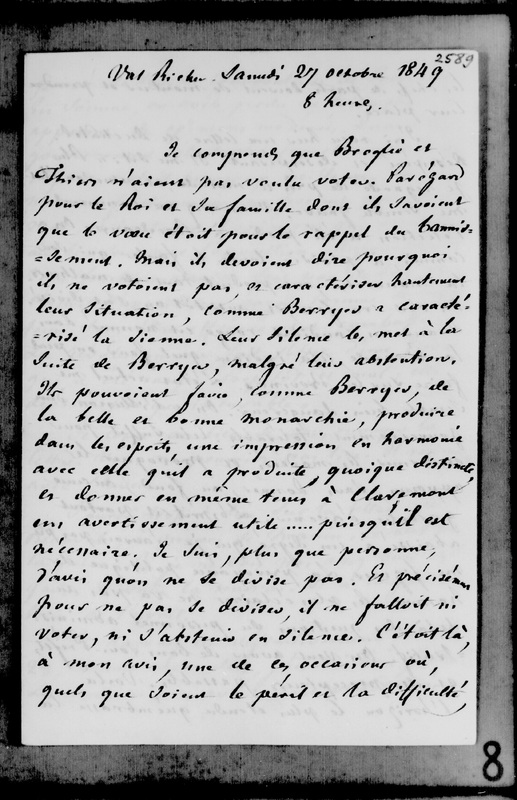 2589
Val Richer. Samedi 27 octobre 1849
8 heures.
Je comprends que Broglie et
Thiers n'aient pas voulu voter. Par égard
pour le Roi et sa famille dont ils savoient
que le vœu étoit pour le rappel du bannis-
=sement. Mais ils devoient dire pourquoi
ils ne votoient pas, et caractériser hautement
leur situation, comme Berryer a caracté-
=risé la sienne. Leur silence les met à la
suite de Berryer, malgré leur abstention.
Ils pouvoient faire, comme Berryer, de
la belle et bonne monarchie, produire
dans les esprits une impression en harmonie
avec celle qu'il a produite, quoique distincte,
et donner en même tems à Claremont
un avertissement utile ..... puisqu'il est
nécessaire. Je suis, plus que personne,
d'avis qu'on ne se divise pas. Et précisément
pour ne pas se diviser, il ne falloit ni
voter, ni s'abstenir en silence. C'étoit là,
à mon avis, une de ces occasions où,
quels que soient le péril et la difficulté,
8